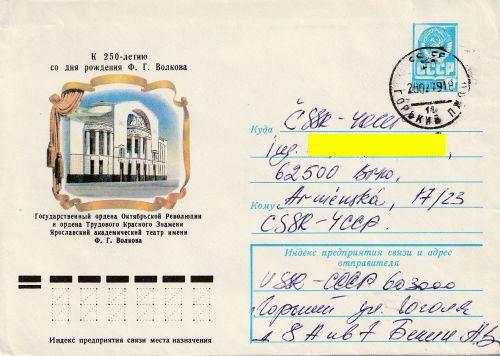 К 250-летию
со дня рождения Ф. Г. Волкова
Государственный ордена Октябрьской Революции
и ордена Трудового Красного Знамени
Ярославский академический театр имени
Ф. Г. Волкова
СССР
ГОРЬКИЙ
Куда ČSSR-ЧССР
ing.
62500 Brno,
Кому Arménská, 17/23
ČSSR-ЧССР.
Индекс предприятия связи и адрес
отправителя
USSR-СССР 603000
Горький ул. Гоголя
Индекс предприятия связи места назначения